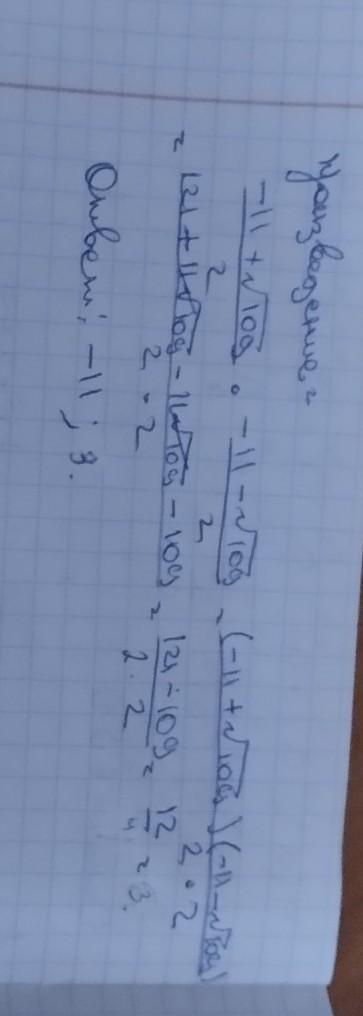 Произведение =
(-11 + √109)/2 · (-11 - √109)/2 = ((-11 + √109)(-11 - √109))/(2 · 2)
= (121 + 11√109 - 11√109 - 109)/(2 · 2) = (121 - 109)/(2 · 2) = 12/4 = 3.
Ответ: -11; 3.